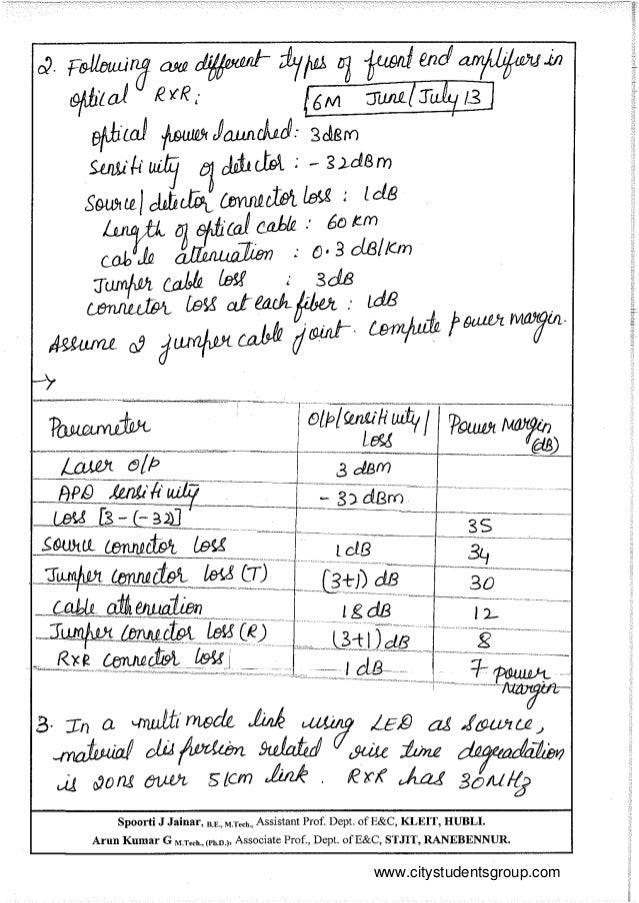 2. Following are different types of front end amplifiers in
optical RXR:
6M June/July 13
optical power launched: 3dBm
Sensitivity of detector : -32dBm
Source/detector connector loss : 1dB
Length of optical cable : 60 Km
cable attenuation : 0.3 dB/Km
Jumper cable loss : 3dB
connector loss at each fiber : 1dB
Assume 2 jumper cable joint. compute power margin.
→
Parameter O/p/sensitivity/ Loss Power Margin (dB)
Laser o/p 3 dBm
APD sensitivity -32 dBm
Loss [3-(-32)] 35
Source connector loss 1dB 34
Jumper connector loss (T) (3+1) dB 30
Cable atthenuation 18 dB 12
Jumper connector Loss (R) (3+1) dB 8
RXR connector loss 1 dB 7 power Margin
3. In a multimode link using LED as source,
material dispersion related rise time degradation
is 20ns over 5Km link. RXR has 30MHz
Spoorti J Jainar, B.E., M.Tech., Assistant Prof. Dept. of E&C, KLEIT, HUBLI.
Arun Kumar G M.Tech., (Ph.D.), Associate Prof., Dept. of E&C, STJIT, RANEBENNUR.
www.citystudentsgroup.com